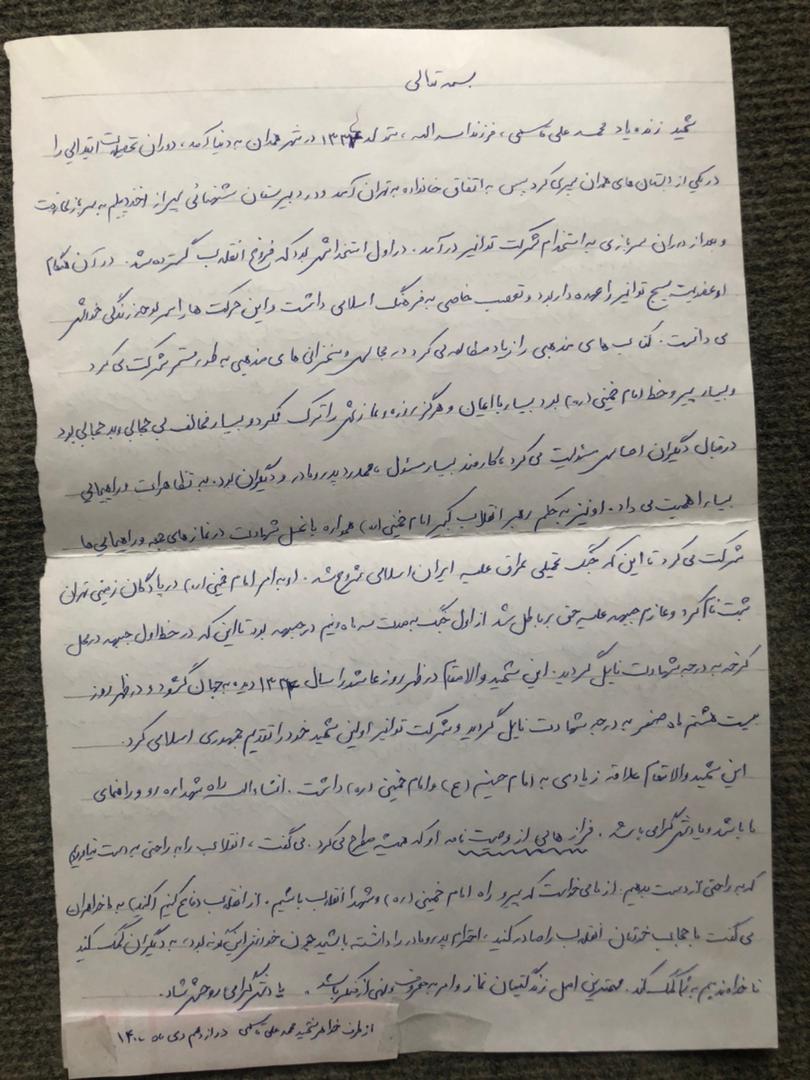 بسمه تعالی
شهید زنده یاد محمد علی قاسمی، فرزند اسداله، متولد ۱۳۳۴ در شهر همدان به دنیا آمد، دوران تحصیلات ابتدایی را
در یکی از دبستان های همدان سپری کرد پس به اتفاق خانواده به تهران آمد و در دبیرستان شبانه پس از اخذ دیپلم به سربازی رفت
و بعد از دوران سربازی به استخدام شرکت توانیر در آمد. در اول استخدامش بود که فروغ انقلاب گسترده شد. در آن هنگام
او عضویت بسیج توانیر را عهده دار بود و تعصب خاصی به فرهنگ اسلامی داشت و این حرکت ها را سرلوحه زندگی خودش
می دانست. کتاب های مذهبی را زیاد مطالعه می کرد در مجالس و سخنرانی های مذهبی به طور مستمر شرکت می کرد
و بسیار پیرو خط امام خمینی (ره) بود بسیار با ایمان و هرگز روزه و نمازش را ترک نکرد و بسیار مخالف بی حجابی و بد حجابی بود
در قبال دیگران احساس مسئولیت می کرد، کارمند بسیار مسئول، همدرد پدر و مادر و دیگران بود. به تظاهرات و راهپیمایی
بسیار اهمیت می داد. او نیز به حکم رهبر انقلاب کبیر امام خمینی (ره) همواره با غسل شهادت در نماز های جمعه و راهپیمایی ها
شرکت می کرد تا این که جنگ تحمیلی عراق علیه ایران اسلامی شروع شد. او به امر امام خمینی (ره) در پادگان زمینی تهران
ثبت نام کرد و عازم جبهه علیه حق بر باطل شد از اول جنگ به مدت سه ماه و نیم در جبهه بود تا این که در خط اول جبهه در محل
کرخه به درجه شهادت نایل گردید. این شهید والامقام در ظهر روز عاشورا سال ۱۳۳۴ دیده به جهان گشود و در ظهر روز
بیست هشتم ماه صفر به درجه شهادت نایل گردید و شرکت توانیر اولین شهید خود را تقدیم جمهوری اسلامی کرد.
این شهید والامقام علاقه زیادی به امام حسین (ع) و امام خمینی (ره) داشت. انشاءاله راه شهدا ره رو و راهنمای
ما باشد و یادش گرامی باشد. فراز هایی از وصیت نامه او که همیشه مطرح می کرد. می گفت، انقلاب را به راحتی به دست نیاوردیم
که به راحتی از دست بدهیم. از ما می خواست که پیرو راه امام خمینی (ره) و شهدا انقلاب باشیم. از انقلاب دفاع کنیم (کنید) به ما خواهران
می گفت با حجاب خودتان انقلاب را صادر کنید، احترام پدر و مادر را داشته باشید چون خودش این گونه بود، به دیگران کمک کنید
تا خداوند هم به شما کمک کند. مهمترین اصل زندگیتان نماز و امر به معروف و نهی از منکر باشد. یادش گرامی روحش شاد.
از طرف خواهر شهید محمد علی قاسمی دوازدهم دی ماه ۱۴۰۰